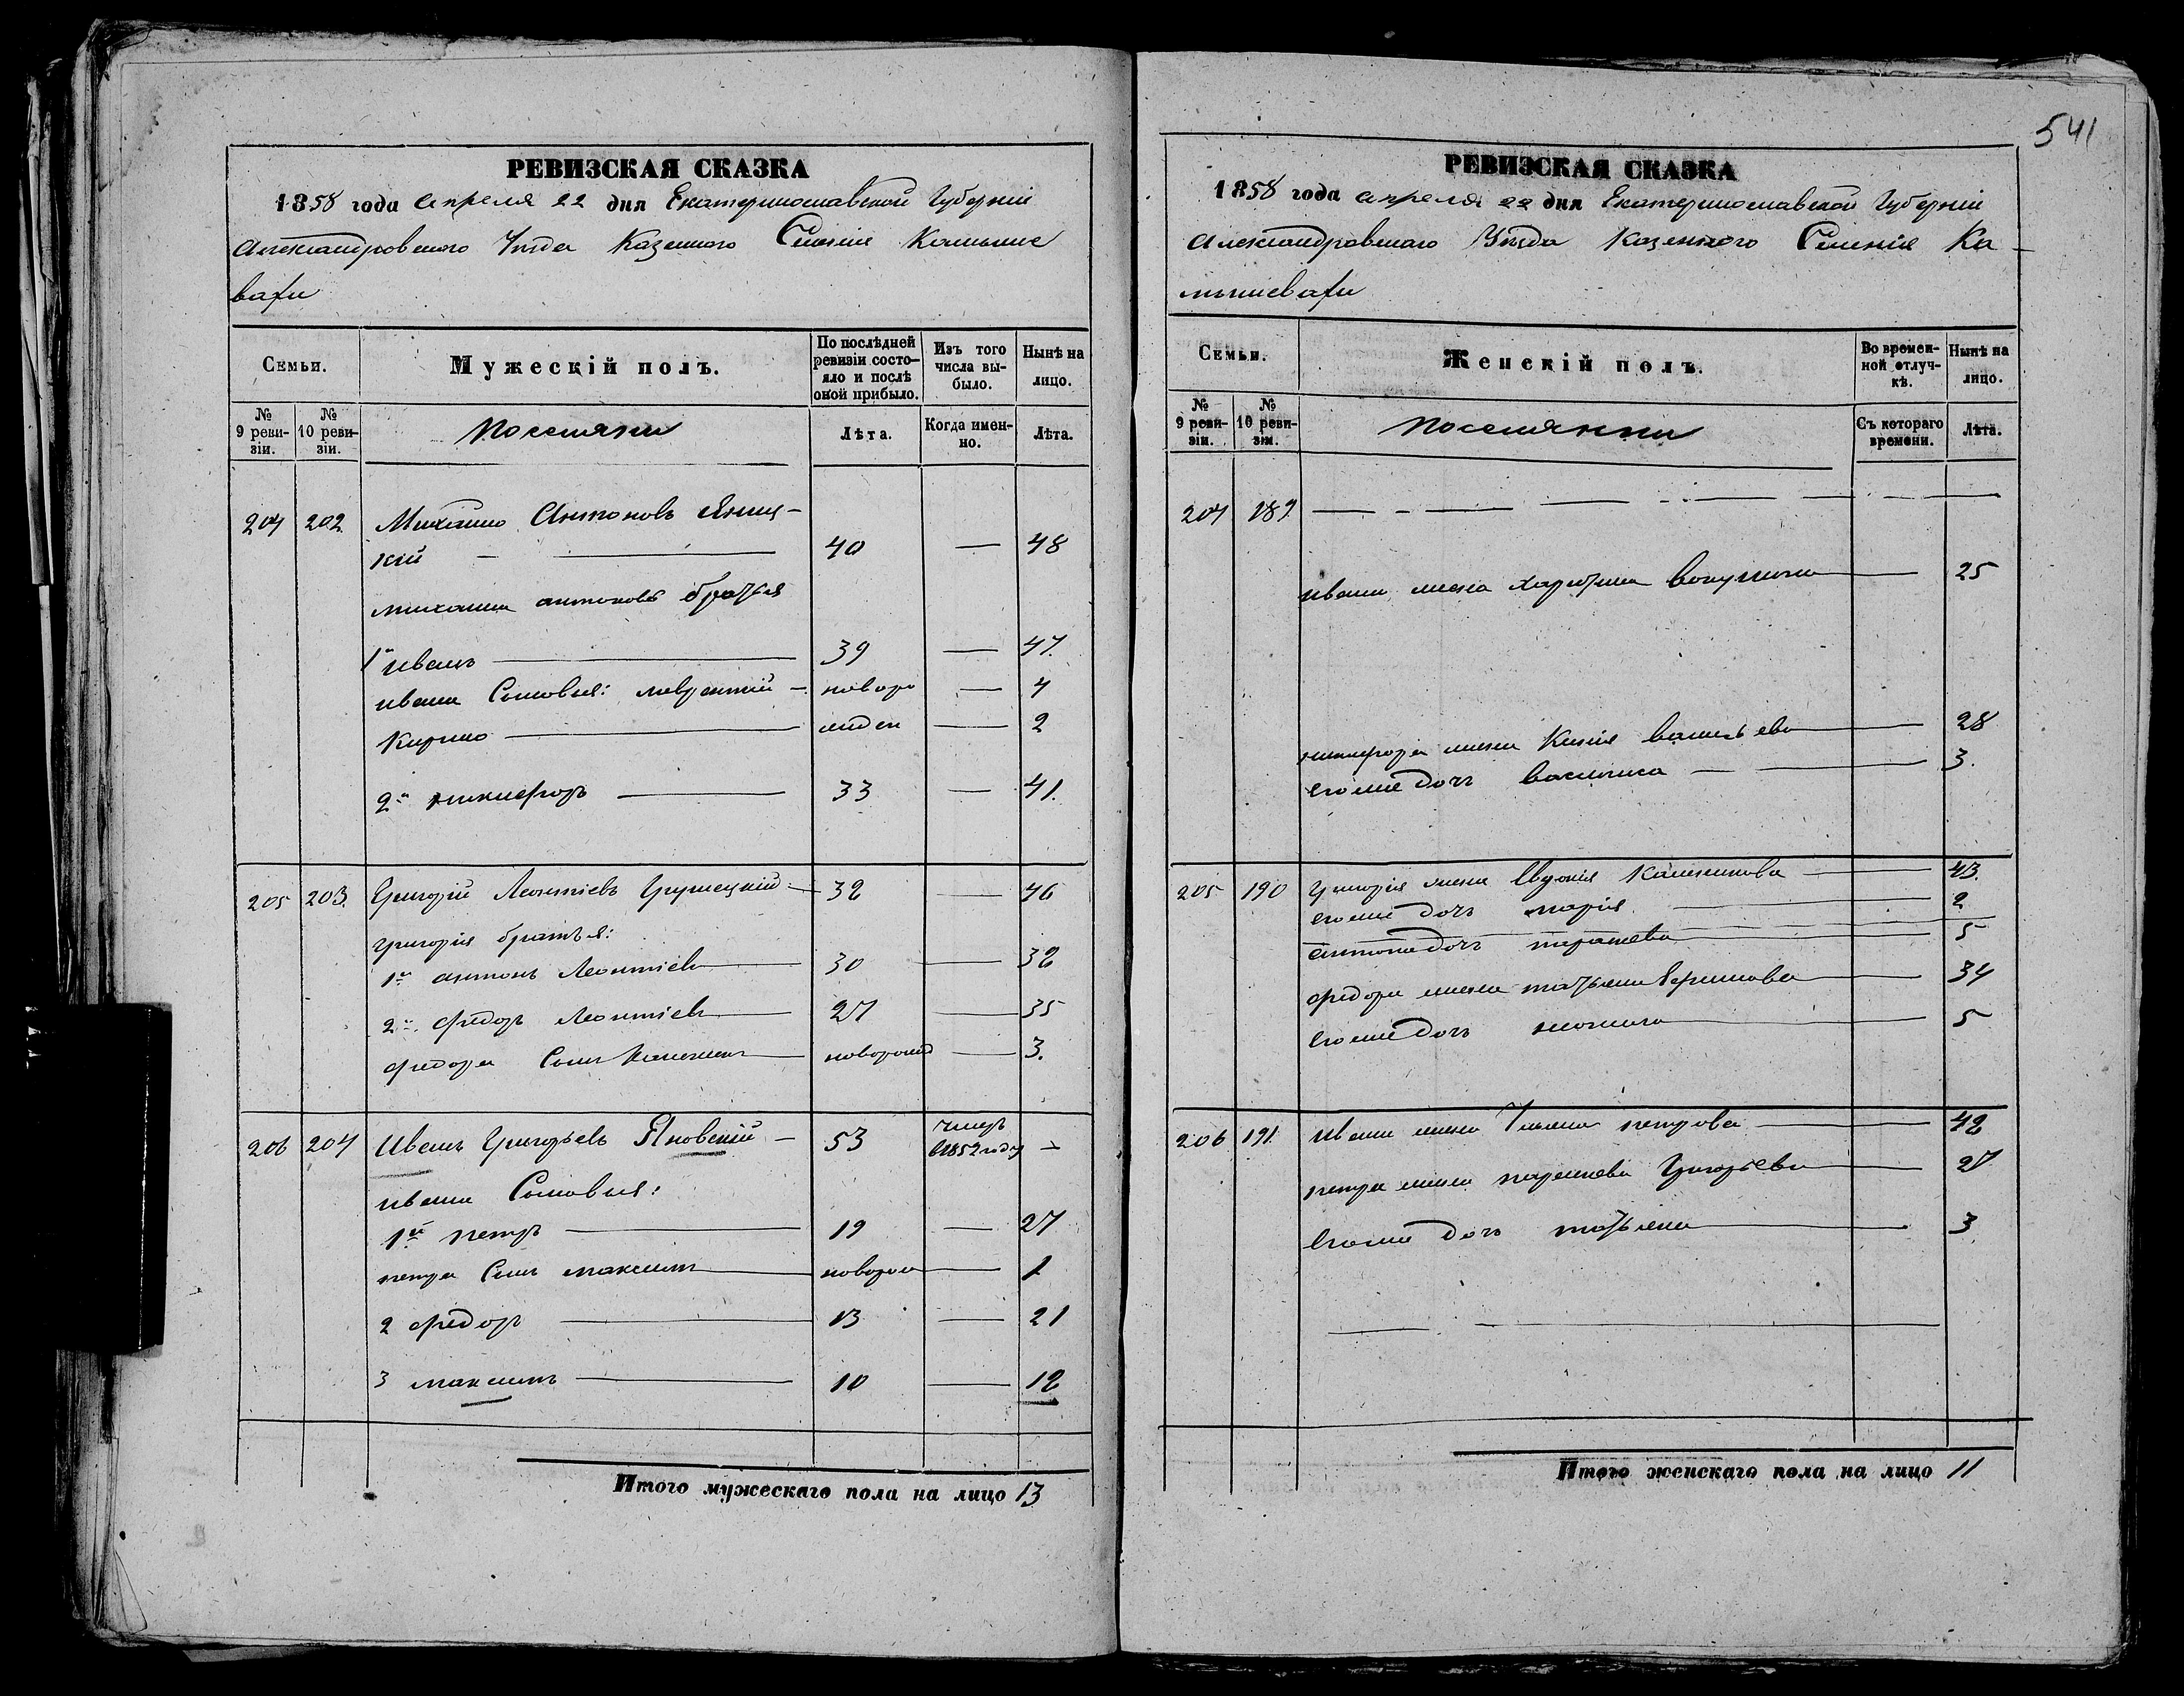 541
РЕВИЗСКАЯ СКАЗКА
1858 года апреля 22 дня Екатеринославской Губерніи
Александровского Уезда Казенного Селенія Камыше
вахи
Семьи.
Мужескій полъ.
По послѣдней ревизіи состо-
яло и послѣ оной прибыло.
Изъ того числа вы-
было.
Нынѣ на лицо.
№ 9 реви-
зіи.
№ 10 реви-
зіи.
Поселяни
Лѣта.
Когда имен-
но.
Лѣта.
204 202 Михайло Антоновъ
кій — 40 — 48
михаила антонова братья
1й иванъ — 39 — 47.
ивана Сыновья: лаврентій — новоро — 4
Кирило — жден — 2
2й никифоръ — 33 — 41.
205 203. Григорій Леонтіевъ 38 — 46
григорія братья:
1й антонъ Леонтіевъ — 30 — 38
2й федоръ Леонтіевъ — 27 — 35
федора Сынъ — новорожд — 3.
206 204 Иванъ Григорьевъ Яновскій — 53 умеръ в 1852 году —
ивана Сыновья:
1й петръ — 19 — 27
петра Сынъ максимъ — новорож — 1
2 федоръ — 13 — 21
3 максимъ — 10 — 18
Итого мужескаго пола на лицо 13
РЕВИЗСКАЯ СКАЗКА
1858 года апреля 22 дня Екатеринославской Губерніи
Александровского Уезда Казенного Селенія Ка-
мышевахи
Семьи.
Женскій полъ.
Во времен-
ной отлуч-
кѣ.
Нынѣ на лицо.
№ 9 реви-
зіи.
№ 10 реви-
зіи.
Поселянки
Съ котораго времени.
Лѣта.
204 189.
ивана жена харитина — 25
никифора жена Ксенія васильева — 28
его же дочь василиса — 3.
205 190 григорія жена Евдокія — 43.
его же дочь марія — 2
антона дочь парасева — 5
федора жена татьяна — 34
его же дочь — 5
206 191. ивана жена Ульяна петрова — 48
петра жена парасева Григорьева — 27
его же дочь татьяна — 3
Итого женскаго пола на лицо 11